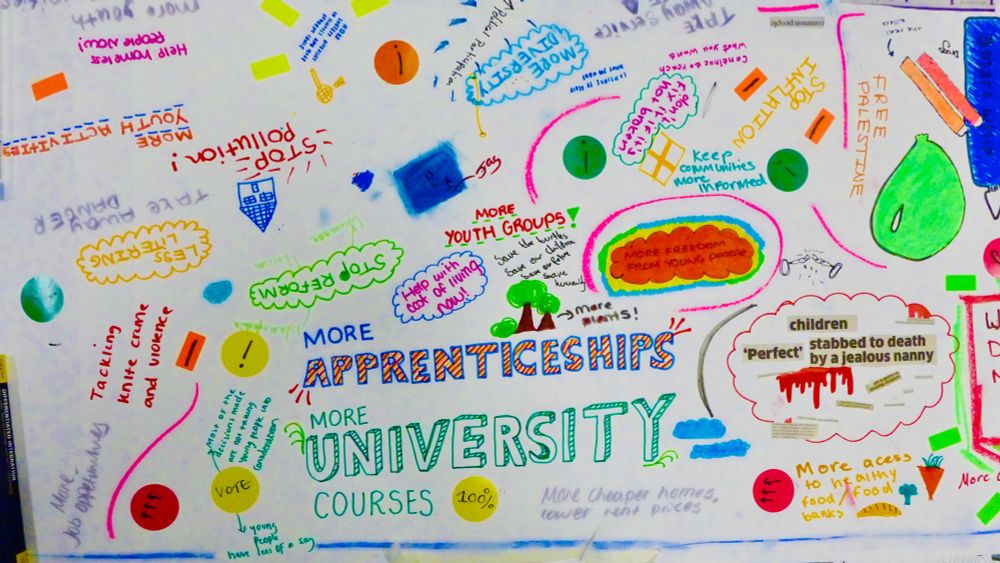 more youth
Help homeless
People Now!
MORE
YOUTH ACTIVITIES
STOP
POLLUTION!
TAKE AWAY
DANGER
LESS
LITERING
STOP REFORM
Political Participation
MORE
DIVERSITY
TAKE
AWAY SERVICE
common people
Continue to reach
what you want
don't
fix it if it's
not broken
STOP
INFLATION
Keep
communities
more
informed
FREE
PALESTINE
Drugs
Gas
MORE
YOUTH GROUPS!
Save the turtles
Save our children
Save our future
Save
humanity
Help with
cost of living
now!
MORE FREEDOM
FROM YOUNG PEOPLE
more
plants!
Tackling
knife crime
and violence
!
MORE
APPRENTICESHIPS
MORE
UNIVERSITY
COURSES
children
'Perfect' stabbed to death
by a jealous nanny
Most of the
decisions made
are not taking
young people into
consideration
VOTE
young
people
have less of a say
100%
More
Job opportunities
More cheaper homes,
lower rent prices
More acess
to healthy
food / food
banks
DIFFERENTIATED INTEGRATION